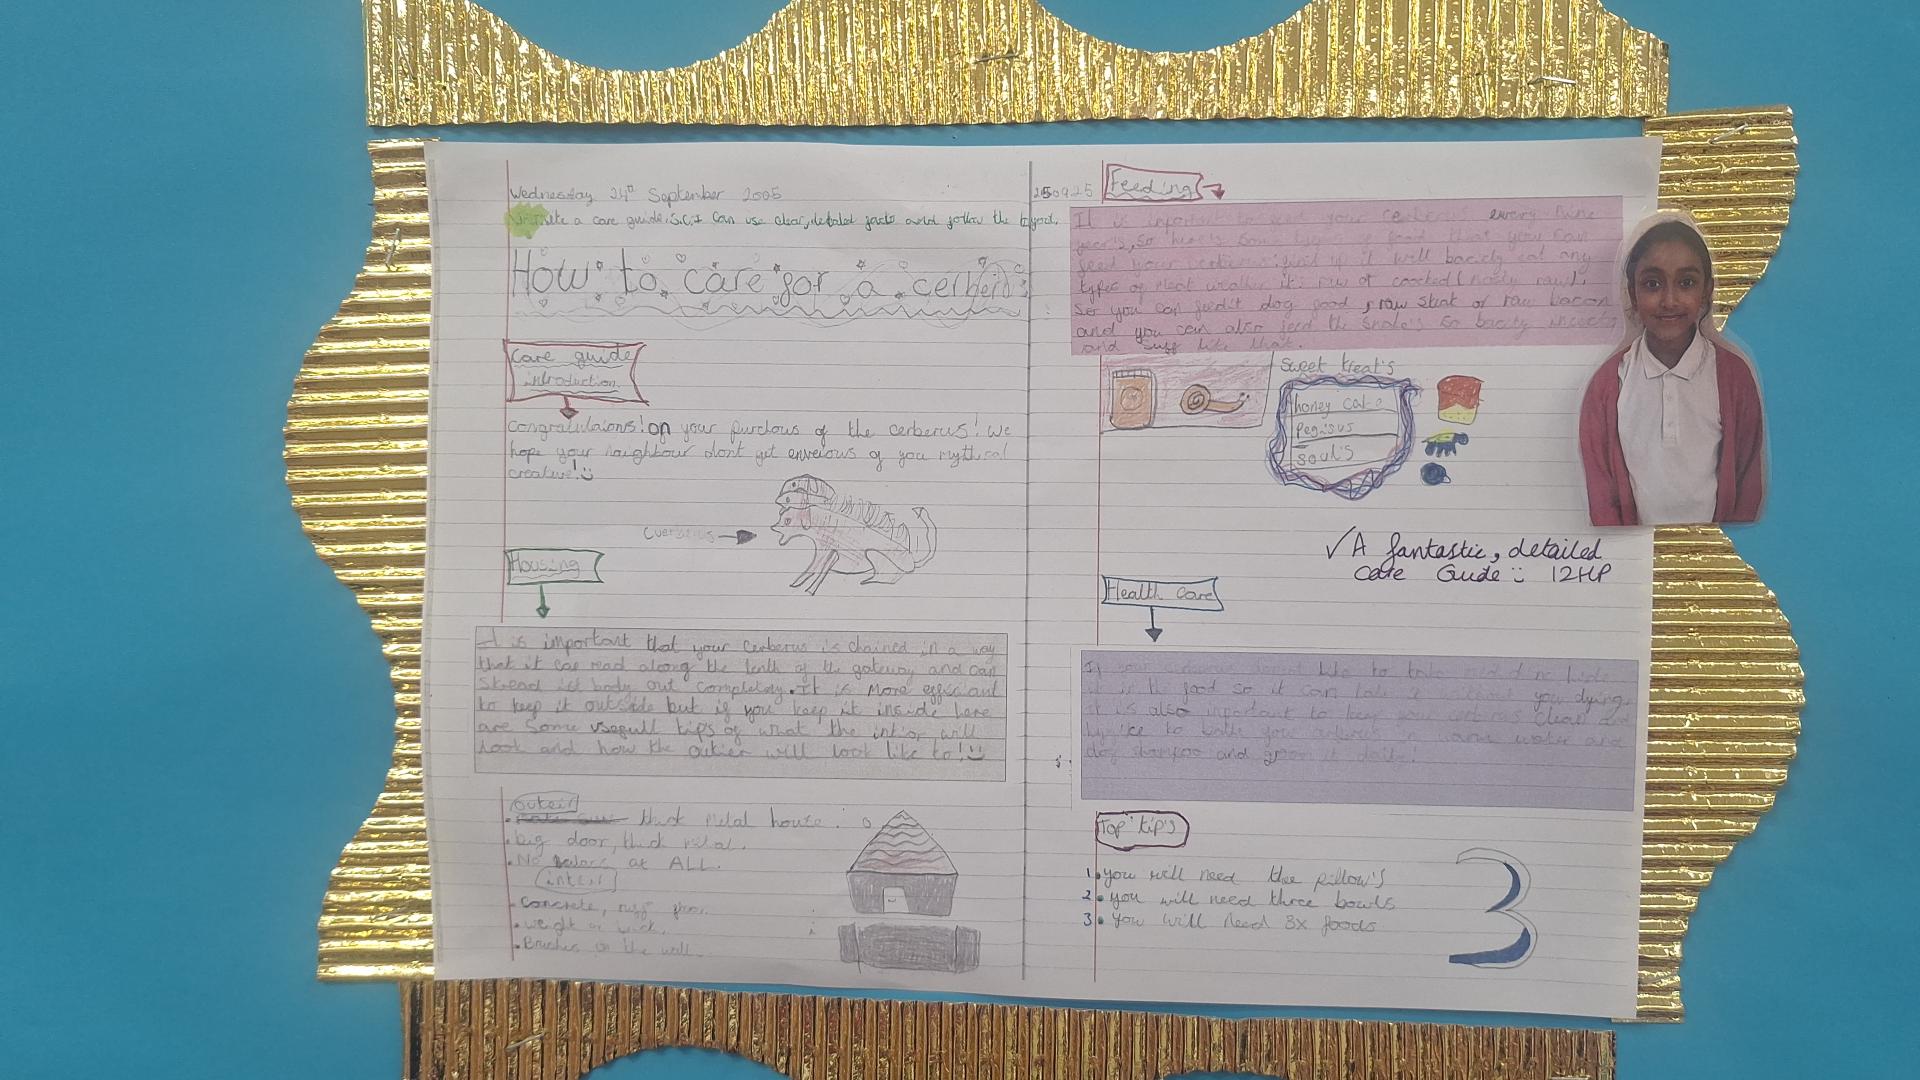 Wednesday 24th September 2005
a care guide. S.C.I can use clear, detailed facts and follow the
How to care for a cerberus
Care guide
introduction
Congratulaions! on your purchous of the cerberus! We
hope your naighbour dont get enveious of you mythical
creative! :)
Housing
It is important that your cerberus is chained in a way
that it can read along the lenth of the gateway and can
Stread ist body out completly. It is more efficiant
to keep it outside but if you keep it inside here
are some usegull tips of what the intior will
look and how the outier will look like to! :)
outeir
thick Metal house.
• big door, thick
• No at ALL.
inteir
• Concrete, ruff
• weight
• Brushes on the wall.
250925
Feeding
It is important to feed your cerberus every nine
year's, so here's some of food that you can
feed your cerberus: it will bacicly eat any
types of meat wether it: raw or coocked (mostly raw).
So you can feed it dog food, raw steak or raw bacon
and you can also feed the snake's so bacicly insects
and suff like that.
Sweet treat's
honey cake
Pegisus
soul's
✓ A fantastic, detailed
care Guide :) 12HP
Health care
If your cerberus doesnt like to take medicine hide
it in the food so it can take it without you dying.
it is also inportant to keep your cerberus clean and
to bathe your cerberus in warm water and
dog shampoo and groom it daily.
Top tip's
1. you will need thee pillow's
2. you will need three bowls
3. you will need 3x foods
3